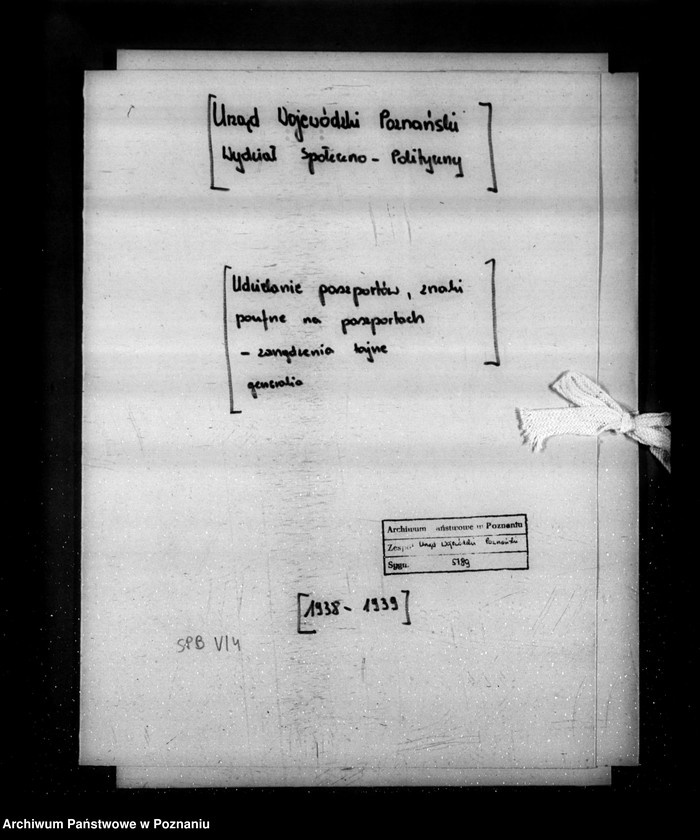 [Urząd Wojewódzki Poznański
Wydział Społeczno - Polityczny]
[Udzielanie paszportów, znaki
poufne na paszportach
- zarządzenia tajne
generalia]
Archiwum Państwowe w Poznaniu
Zespół Urząd Wojewódzki Poznański
Sygn. 5789
[1938 - 1939]
SPB V/4
Archiwum Państwowe w Poznaniu